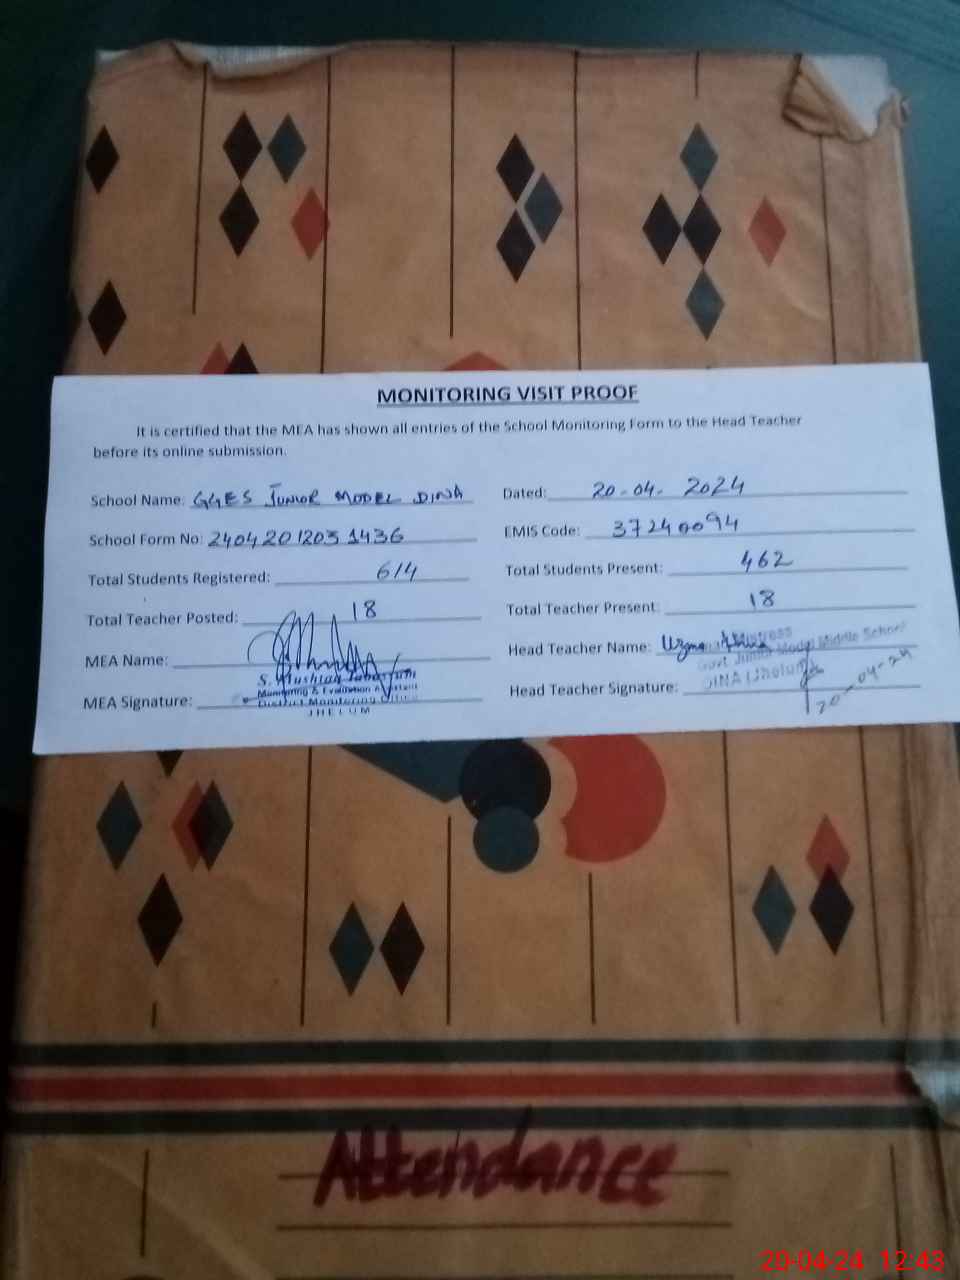 MONITORING VISIT PROOF
It is certified that the MEA has shown all entries of the School Monitoring Form to the Head Teacher
before its online submission.
School Name: GGES JUNIOR MODEL DINA
Dated: 20-04-2024
School Form No: 2404201203 1436
EMIS Code: 37240094
Total Students Registered: 614
Total Students Present: 462
Total Teacher Posted: 18
Total Teacher Present: 18
MEA Name:
Head Teacher Name: Uzma
MEA Signature:
Head Teacher Signature:
S. Mushtaq
Monitoring & Evaluation Assistant
District Monitoring Office
JHELUM
Govt. Junior Model Middle School
DINA (Jhelum)
20-04-24
Attendance
20-04-24 12:43